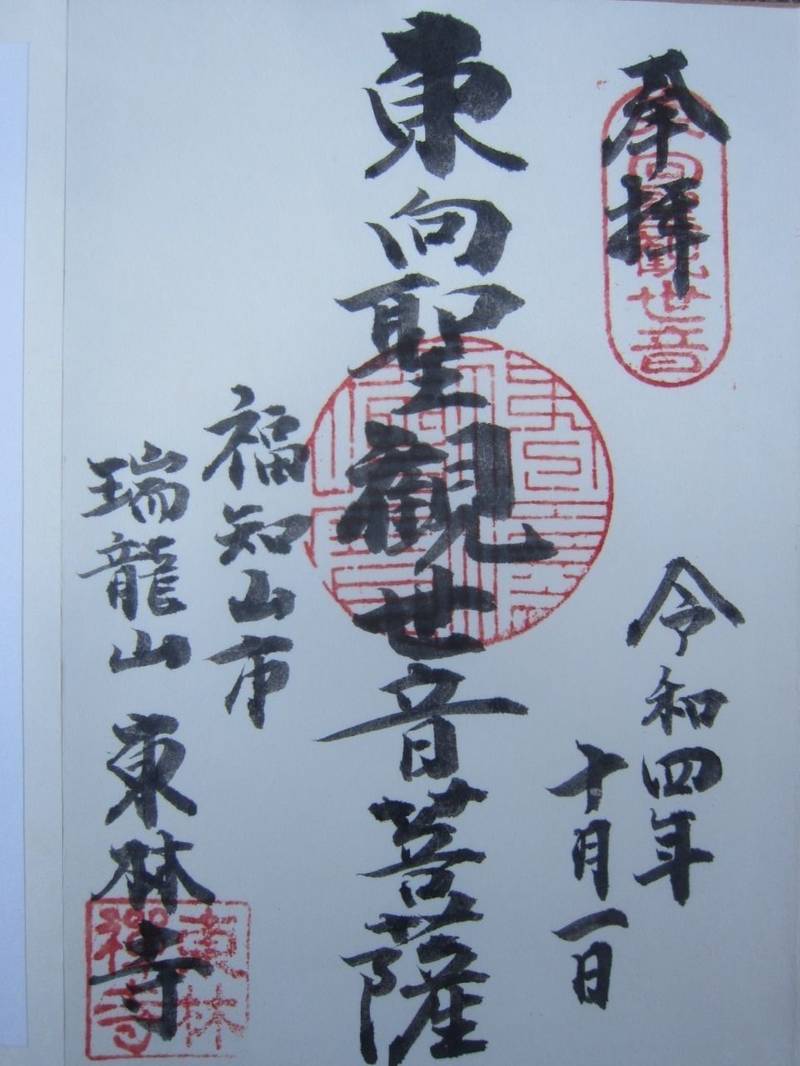 奉拝
令和四年
十月一日
東向聖観世音菩薩
福知山市
瑞龍山 東林寺
東林
禅寺